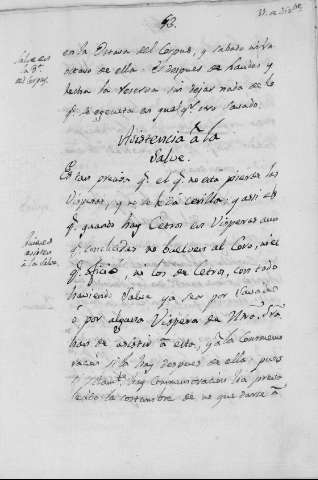 52.
Salve en
la 8ª
del Corpus.
en la Octava del Corpus, y sabado infra
octavo de ella. Y despues de
hecha la reserva sin dejar nada de lo
q.e se egecuta en qualq.r otro Sabado.
Asistencia á la
Salve.
Es tan precisa q.e el q.e no esta pierde las
Visperas, y no se le da cerilla; y assi es
q.e quando hay Cetros en Visperas aun
concluidas no buelven al Coro, ni el
q.e ofició, ni los de Cetros, con todo
haviendo Salve ya sea por Sabado
ó por alguna Vispera de Ntra. Sra.
han de asistir á esta, y á la Conmemo
racion si la hay despues de ella, pues
hay Conmemoracion ha preva
lecido la costumbre de no que darse á
Quienes
asisten
á la Salve.